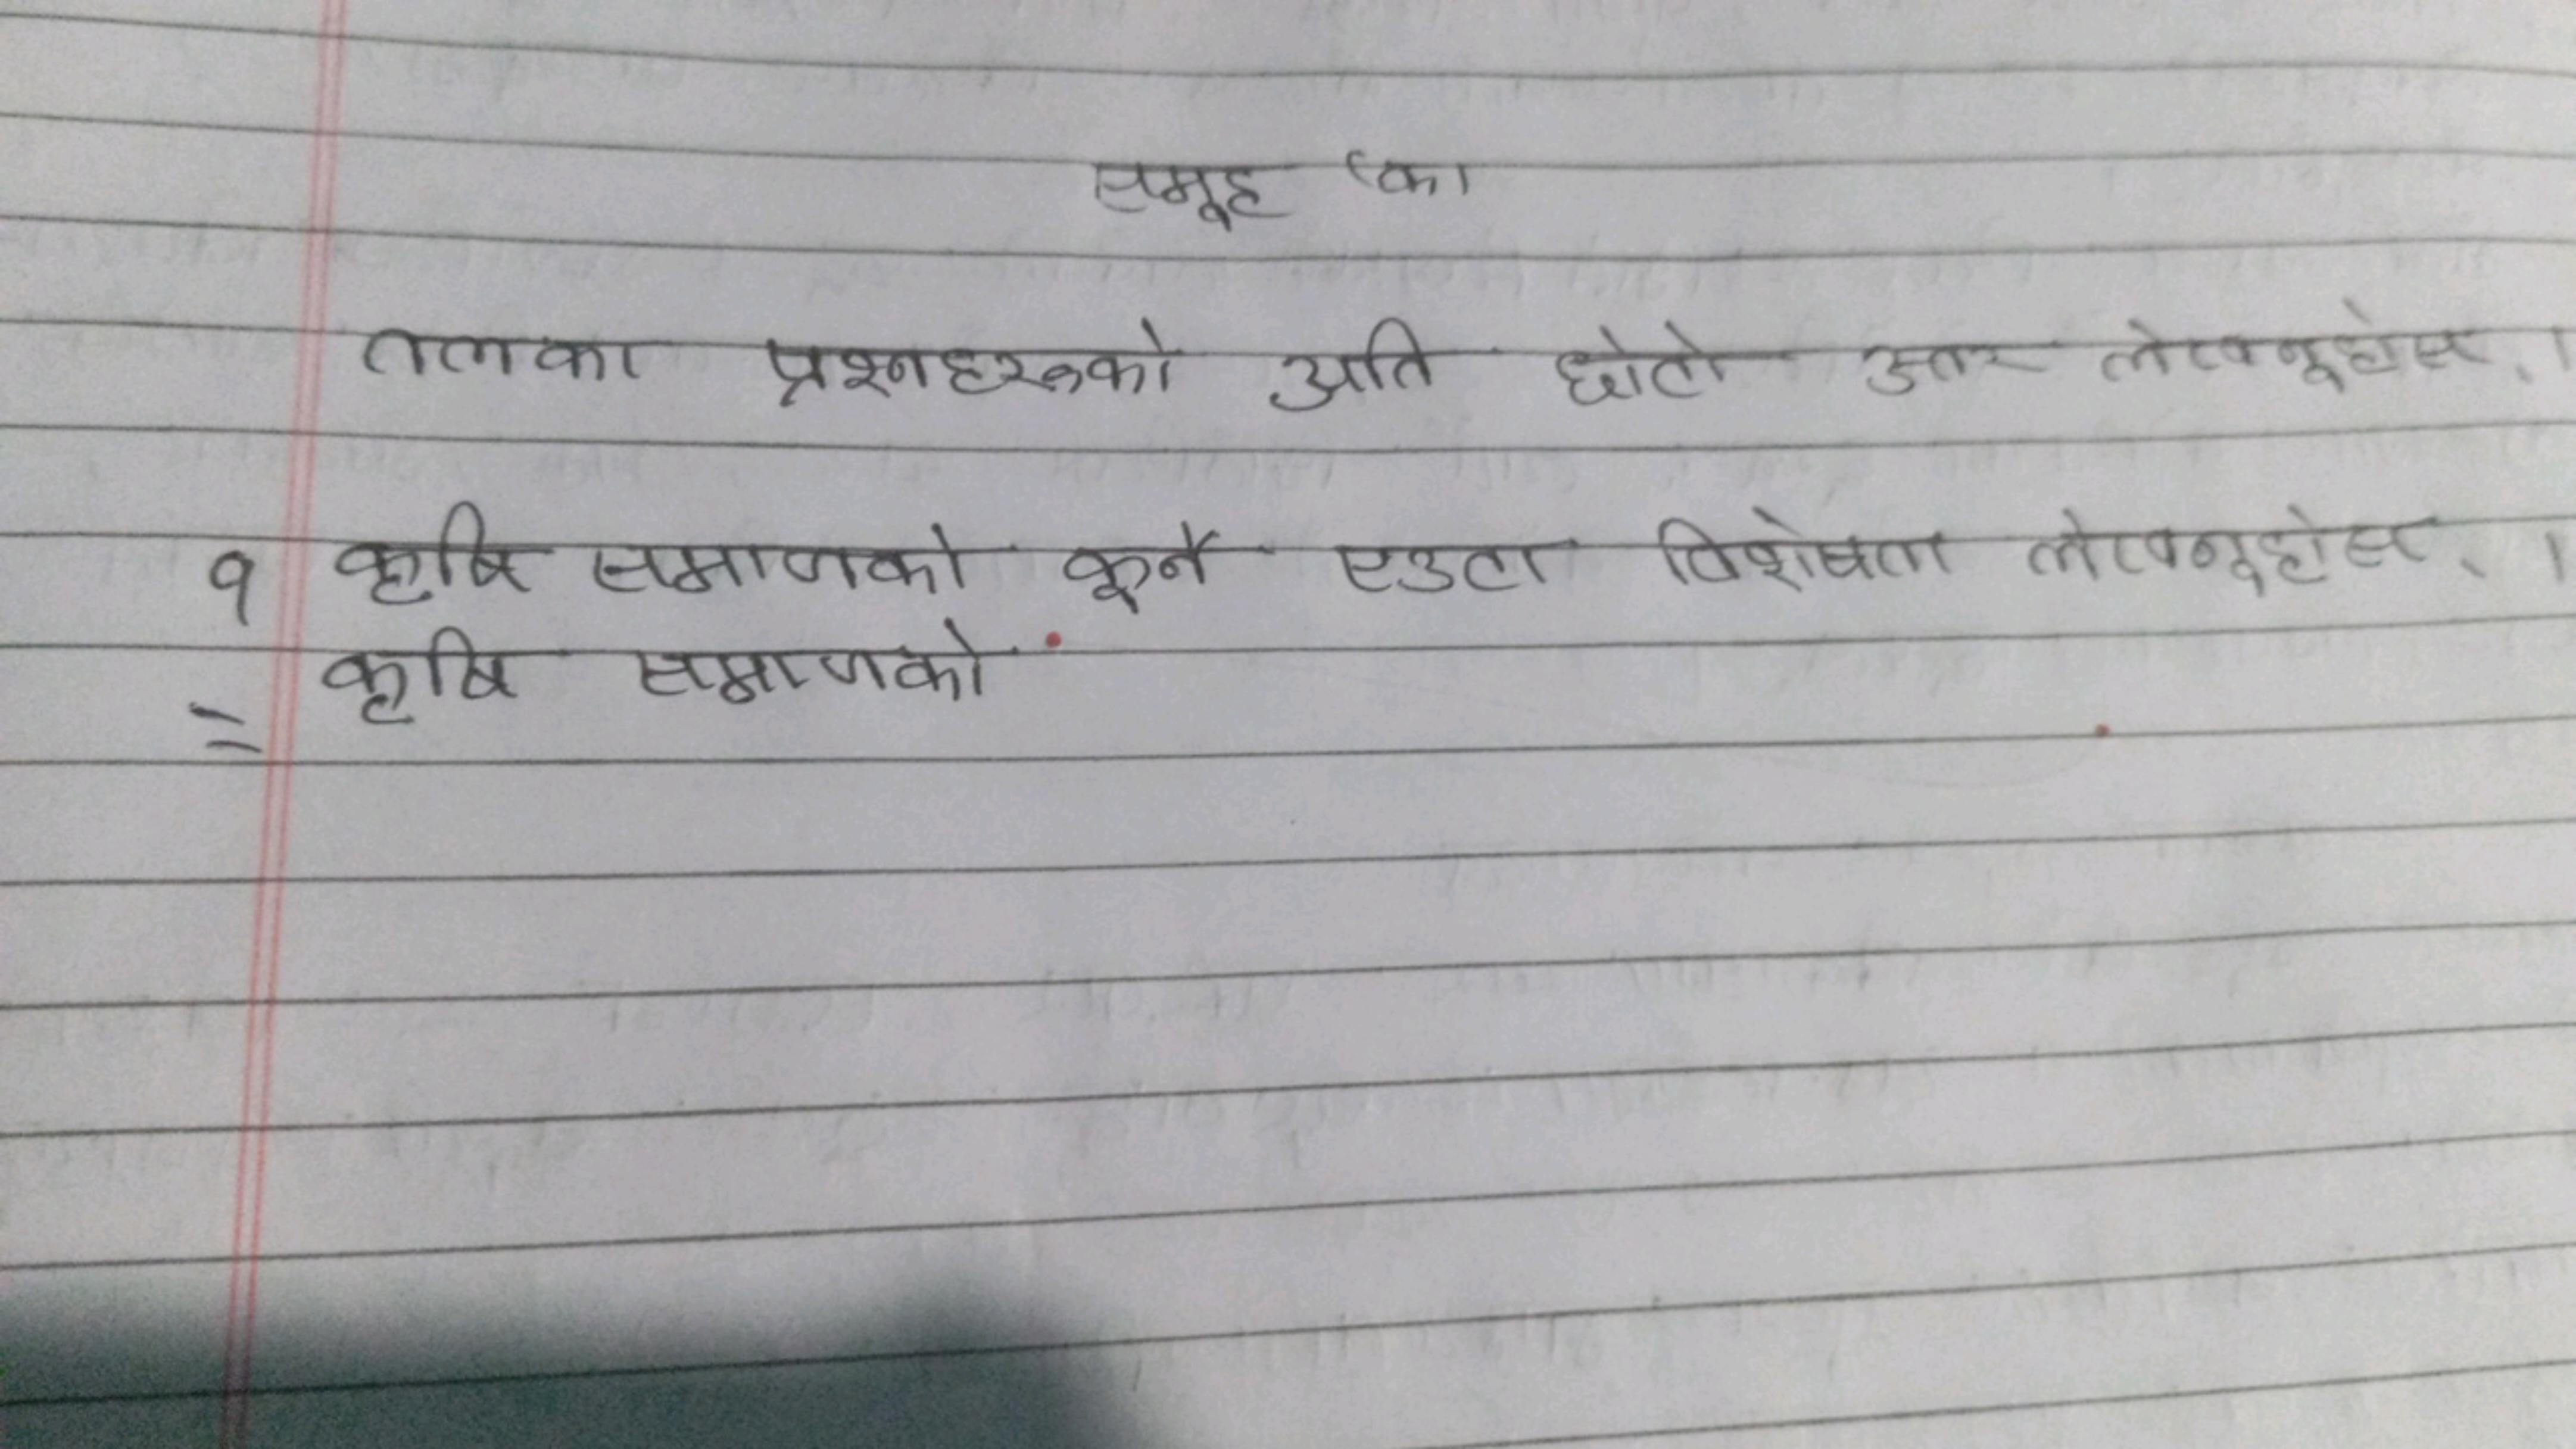 समूह 'का
तलका प्रश्नहरूको अति छोटो उत्तर लेख्नूहोस् ।
१ कृषि समाजको कूनै एउटा विशेषता लेख्नूहोस् ।
= कृषि समाजको